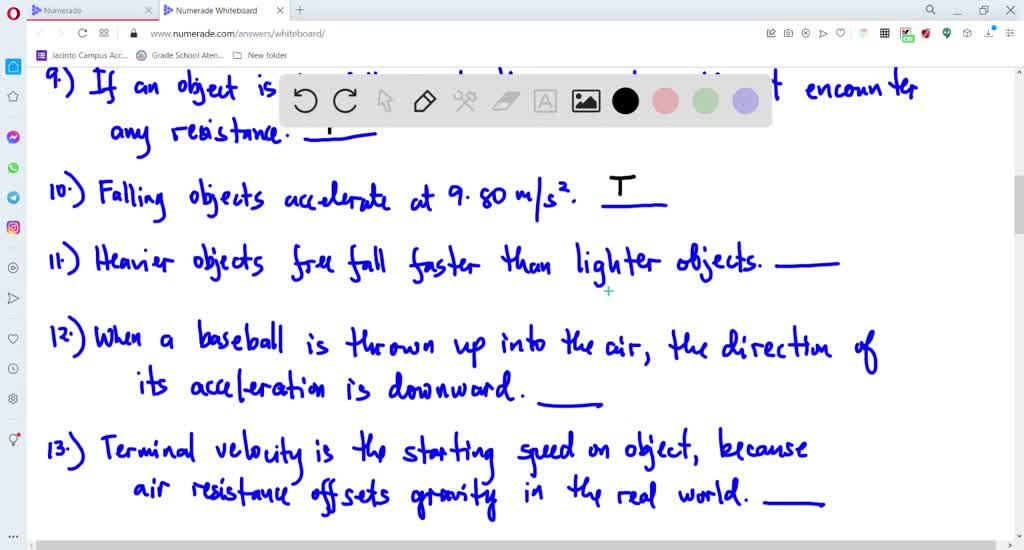 Numerade
Numerade Whiteboard
www.numerade.com/answers/whiteboard/
Jacinto Campus Acc...
Grade School Aten...
New folder
9.) If an object is
encounter
any resistance.
10.) Falling objects accelerate at 9.80 m/s². T
11.) Heavier objects free fall faster than lighter objects.
12.) When a baseball is thrown up into the air, the direction of
its acceleration is downward.
13.) Terminal velocity is the starting speed on object, because
air resistance offsets gravity in the real world.